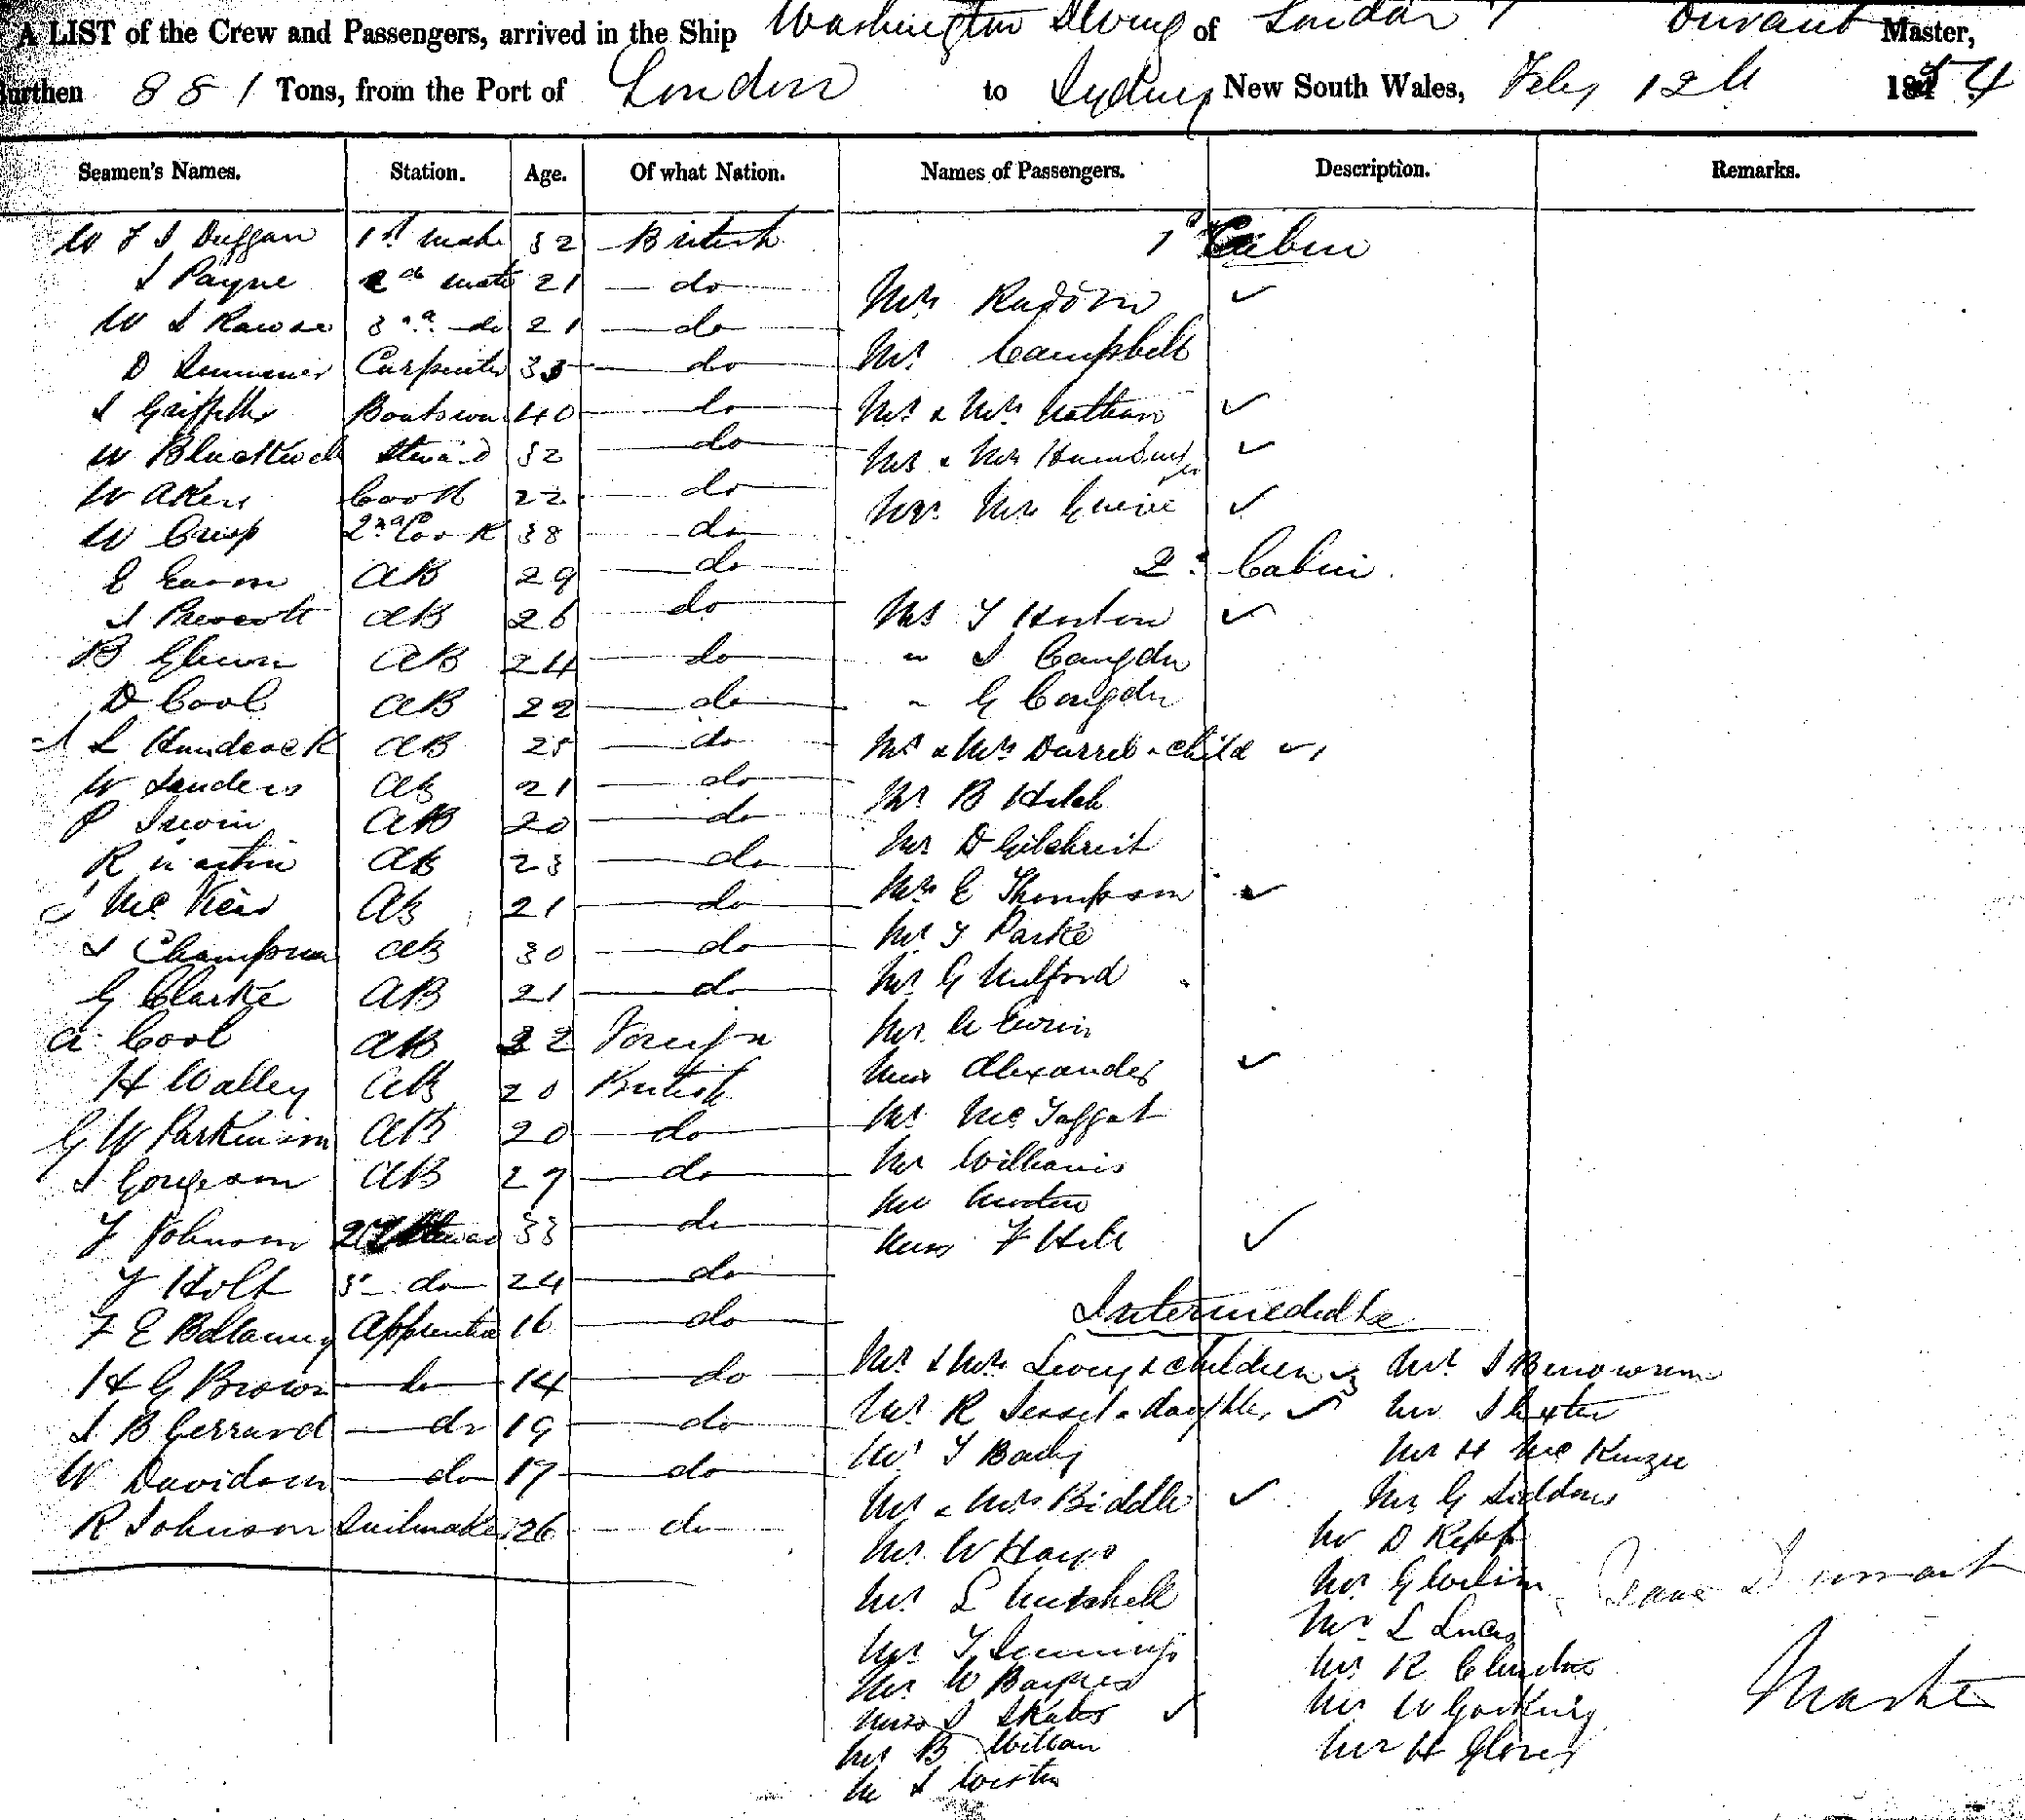 A LIST of the Crew and Passengers, arrived in the Ship Washington Irving of London Durant Master,
Burthen 881 Tons, from the Port of London to Sydney New South Wales, Feby 12th 1854
Seamen's Names. Station. Age. Of what Nation. Names of Passengers. Description. Remarks.
W F J Duggan 1st Mate 32 British
J Payne 2nd Mate 21 do
W J Rawse 3rd do 21 do
D 33 Carpenter do
J Griffiths Boatswn 40 do
W Blackwell Steward 32 do
W Aken Cook 22 do
W Crisp 2nd Cook 38 do
E AB 29 do
J Prescott AB 26 do
B Glenn AB 24 do
D Cool AB 22 do
J L Handcock AB 25 do
W Sanders AB 21 do
P Irwin AB 20 do
R Martin AB 23 do
J McVicar AB 21 do
J Champion AB 30 do
G Clarke AB 21 do
A Cool AB 22 Foreign
H Walley AB 20 British
G W Parkinson AB 20 do
J Gorgeson AB 29 do
F Johnson 2d Steward 33 do
F Holt 3 do 24 do
F E Bellamy Apprentice 16 do
H G Brown do 14 do
J B Gerrard do 19 do
W Davidson do 17 do
R Johnson Sailmaker 26 do
1st Cabin
Mrs
Mr Campbell
Mr & Mrs Nathan
Mr & Mrs Hamburger
Mr Mrs
2d Cabin
Mr T Horton
" J Congdon
" G Congdon
Mr & Mrs Darrel & child 1
Mr B Hitch
Mr D Gilchrist
Mrs E Thompson
Mr T Parke
Mr G Mulford
Mr Ewin
Miss Alexander
Mr McTaggat
Mr Williams
Mr Austin
Miss F Hill
Intermediate
Mr & Mrs Levey & children 3
Mr R Jessel & daughter
Mr T Bady
Mr & Mrs Biddle
Mr W Hays
Mr L Mitchell
Mr T Jennings
Mr W Baynes
Miss J Skates
Mr B Willian
Mr J
Mr J
Mr J Luxton
Mr H McKenzie
Mr G Siddons
Mr D Kipp
Mr G
Mr L Lucas
Mr R
Mr W Gosking
Mr H Glover
Isaac Durrant
Master